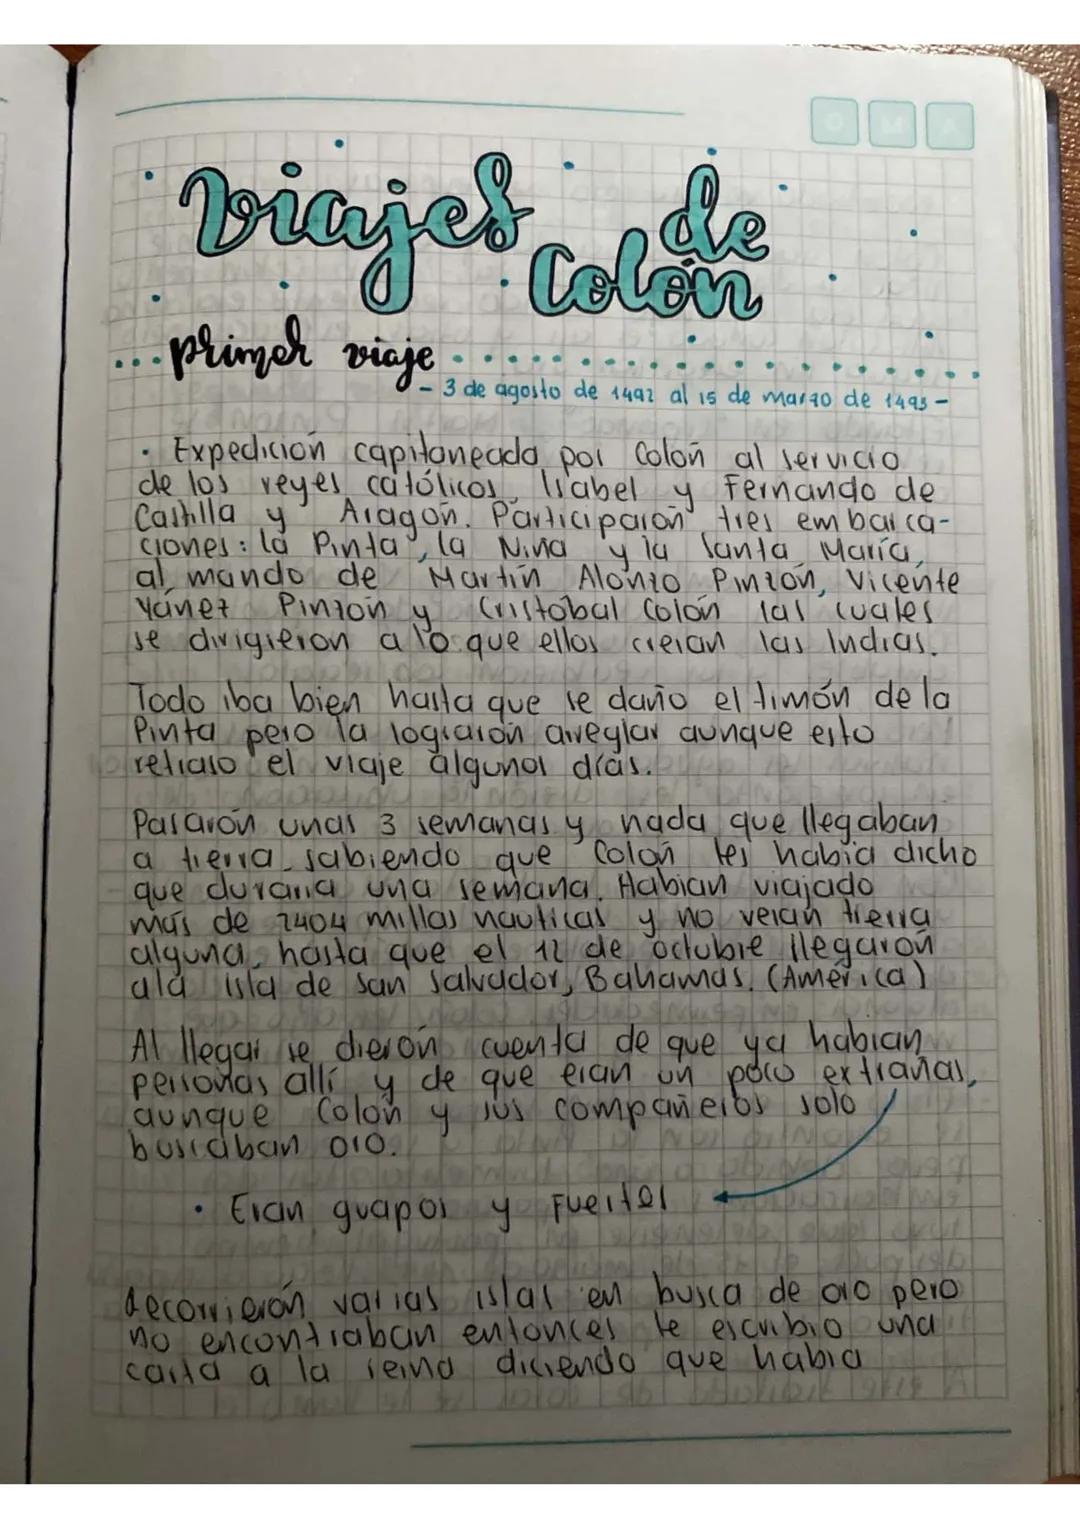 viajes de
Colón
...primer viaje
- 3 de agosto de 1492 al 15 de marzo de 1493 -
• Expedición capitaneada por Colón al servicio
de los reyes católicos, Isabel y Fernando de
Castilla y Aragón. Participarón tres embarca-
ciones: la Pinta, la Niña y la Santa María,
al mando de Martín Alonzo Pinzón, Vicente
Yánez Pinzón y Cristobal Colón las cuales
se dirigieron a lo que ellos creian las Indias.
Todo iba bien hasta que se daño el timón de la
Pinta pero la lograrón arreglar aunque esto
retraso el viaje algunos días.
Pasarón unas 3 semanas y nada que llegaban
a tierra sabiendo que Colón les habia dicho
que duraria una semana. Habian viajado
más de 2404 millas nauticas y no veian tierra
alguna, hasta que el 12 de octubre llegarón
ala isla de San Salvador, Bahamas. (América)
Al llegar se dierón cuenta de que ya habian
personas allí y de que eran un poco extrañas,
aunque Colón y sus compañeros solo
buscaban oro.
• Eran guapos y Fuertes
Recorrierón varias islas en busca de oro pero
no encontraban entonces le escribio una
carta a la reina diciendo que habia